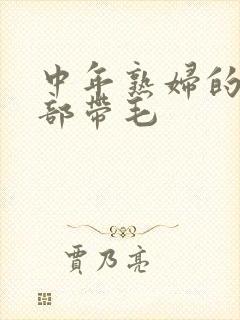 中年熟婦的
部帶毛
賈乃亮